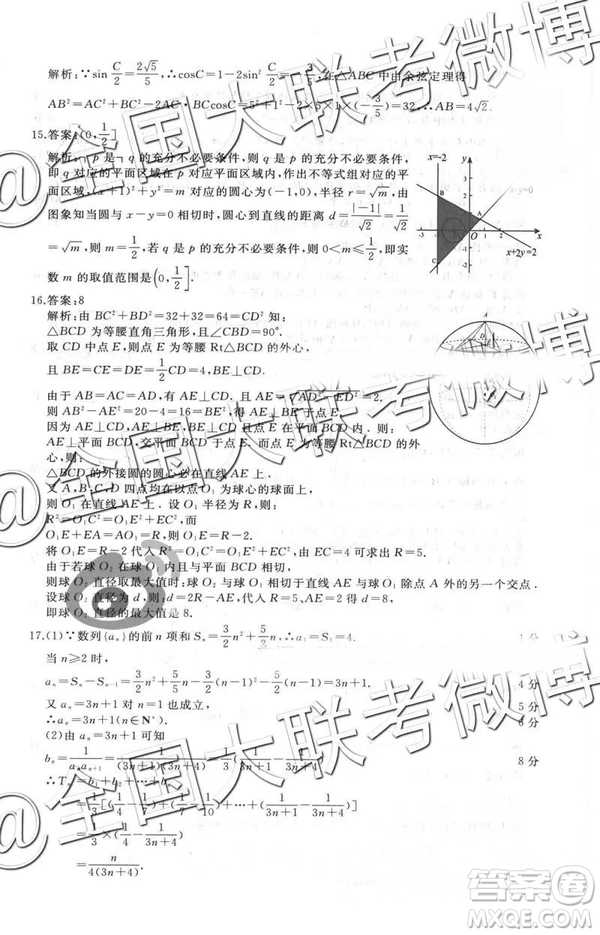 解析:∵sin C/2=2√5/5,∴cosC=1-2sin² C/2=-3/5,在△ABC中由余弦定理得
AB²=AC²+BC²-2AC·BCcosC=5²+1²-2×5×1×(-3/5)=32,∴AB=4√2.
15.答案:(0,1/2]
解析:¬p是¬q的充分不必要条件,则q是p的充分不必要条件,
即q对应的平面区域在p对应的平面区域内,作出不等式组对应的平
面区域,(x+1)²+y²=m对应的圆心为(-1,0),半径r=√m,由
图象知当圆与x-y=0相切时,圆心到直线的距离d=|-1|/√2=1/√2
=√m,则m=1/2,若q是p的充分不必要条件,则0<m≤1/2,即实
数m的取值范围是(0,1/2].
x=-2
y
B
A
C
x
x+2y=2
16.答案:8
解析:由BC²+BD²=32+32=64=CD²知:
△BCD为等腰直角三角形,且∠CBD=90°.
取CD中点E,则点E为等腰Rt△BCD的外心,
且BE=CE=DE=1/2CD=4,AE⊥CD.
由于AB=AC=AD,有AE⊥CD.且AE=
则AB²-AE²=20-4=16=BE²,得AE⊥BE于点E.
因为AE⊥CD,AE⊥BE,CD且点E在平面BCD上,则:
AE⊥平面BCD,交平面BCD于等腰Rt△BCD的外心
△BCD的外接圆的圆心必在直线AE上.
又A、B、C、D四点均在以点O₁为球心的球面上,
则O₁在直线AE上.设O₁半径为R,则:
R²=O₁C²=O₁E²+EC²,而
O₁E+EA=O₁A=R,则O₁E=R-2.
将O₁E=R-2代入R²=O₁E²+EC²,由EC=4可求出R=5.
由于若球O₂与平面BCD相切,
则球O₂直径取最大值时;球O₂与O₁相切于直线AE与球O₁除点A的另一个交点.
设球O₂直径为d,则:d=2R-AE,代入得d=8,
即球O₂直径的最大值是8.
A
17.(1)∵数列{aₙ}的前n项和Sₙ=3/2n²+5/2n,∴a₁=S₁=4. 1分
当n≥2时,
aₙ=Sₙ-Sₙ₋₁=3/2n²+5/2n-3/2(n-1)²-5/2(n-1)=3n+1. 4分
又a₁=4对aₙ=3n+1也成立, 5分
∴aₙ=3n+1(n∈N*). 6分
(2)由aₙ=3n+1可知
bₙ=1/(aₙaₙ₊₁)=1/((3n+1)(3n+4))=1/3(1/(3n+1)-1/(3n+4)) 8分
∴Tₙ=b₁+b₂+…+bₙ
=1/3[(1/4-1/7)+(1/7-1/10)+…+(1/(3n+1)-1/(3n+4))]
=1/3×(1/4-1/(3n+4))
=n/(4(3n+4)).
@全国大联考微博
@全国大联考微博
@全国大联考微博
答案卷
MXQE.COM